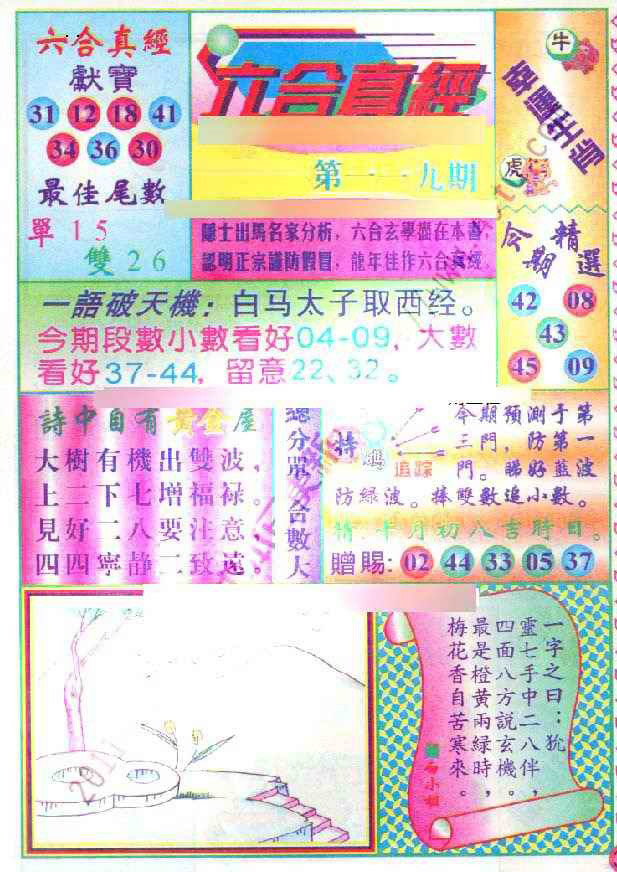 六合真經
獻寶
31 12 18 41
34 36 30
最佳尾數
單15
雙26
六合真經
第一一九期
隱士出馬名家分析，六合玄學盡在本書，
認明正宗謹防假冒，龍年佳作六合真經。
牛
虎
今期精選
42 08
43
45 09
一語破天機：白马太子取西经。
今期段數小數看好04-09，大數
看好37-44，留意22、32。
詩中自有黃金屋
大樹有機出雙波，
上二下七增福禄。
見好二八要注意，
四四寧静二致遠。
總分單 合數大
特
追踪
今期預測于第
三門，防第一
門。睇好藍波
防緑波。捧雙數追小數。
情：十月初八吉時日。
贈賜：02 44 33 05 37
一字之曰：犹
靈七手中二八伴，
四面八方説玄機。
最是橙黃兩緑時，
梅花香自苦寒來。
小姐